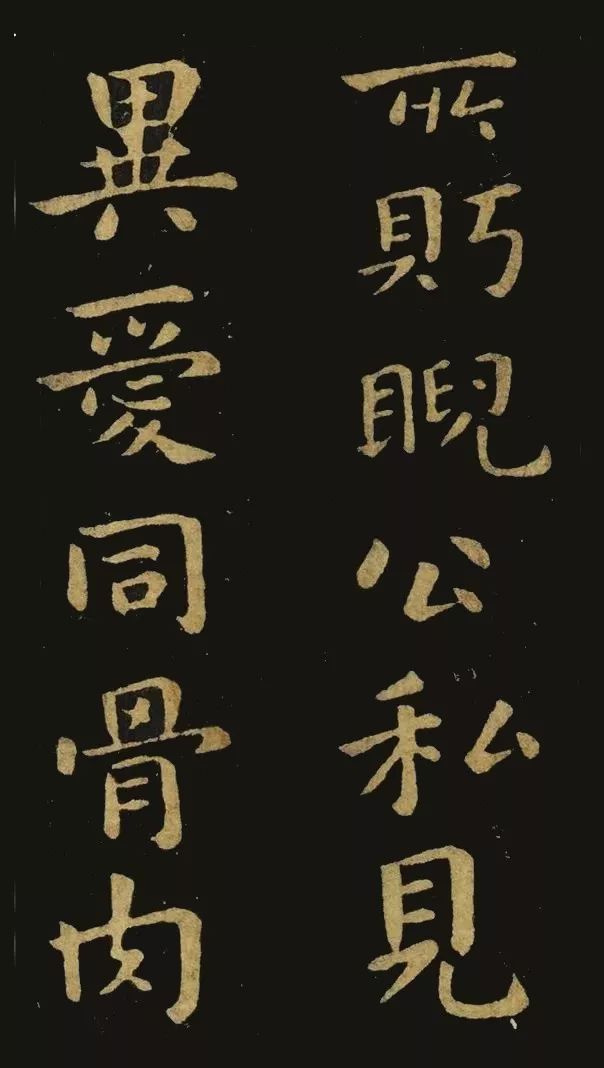 所盱睨公私見
異愛同骨肉